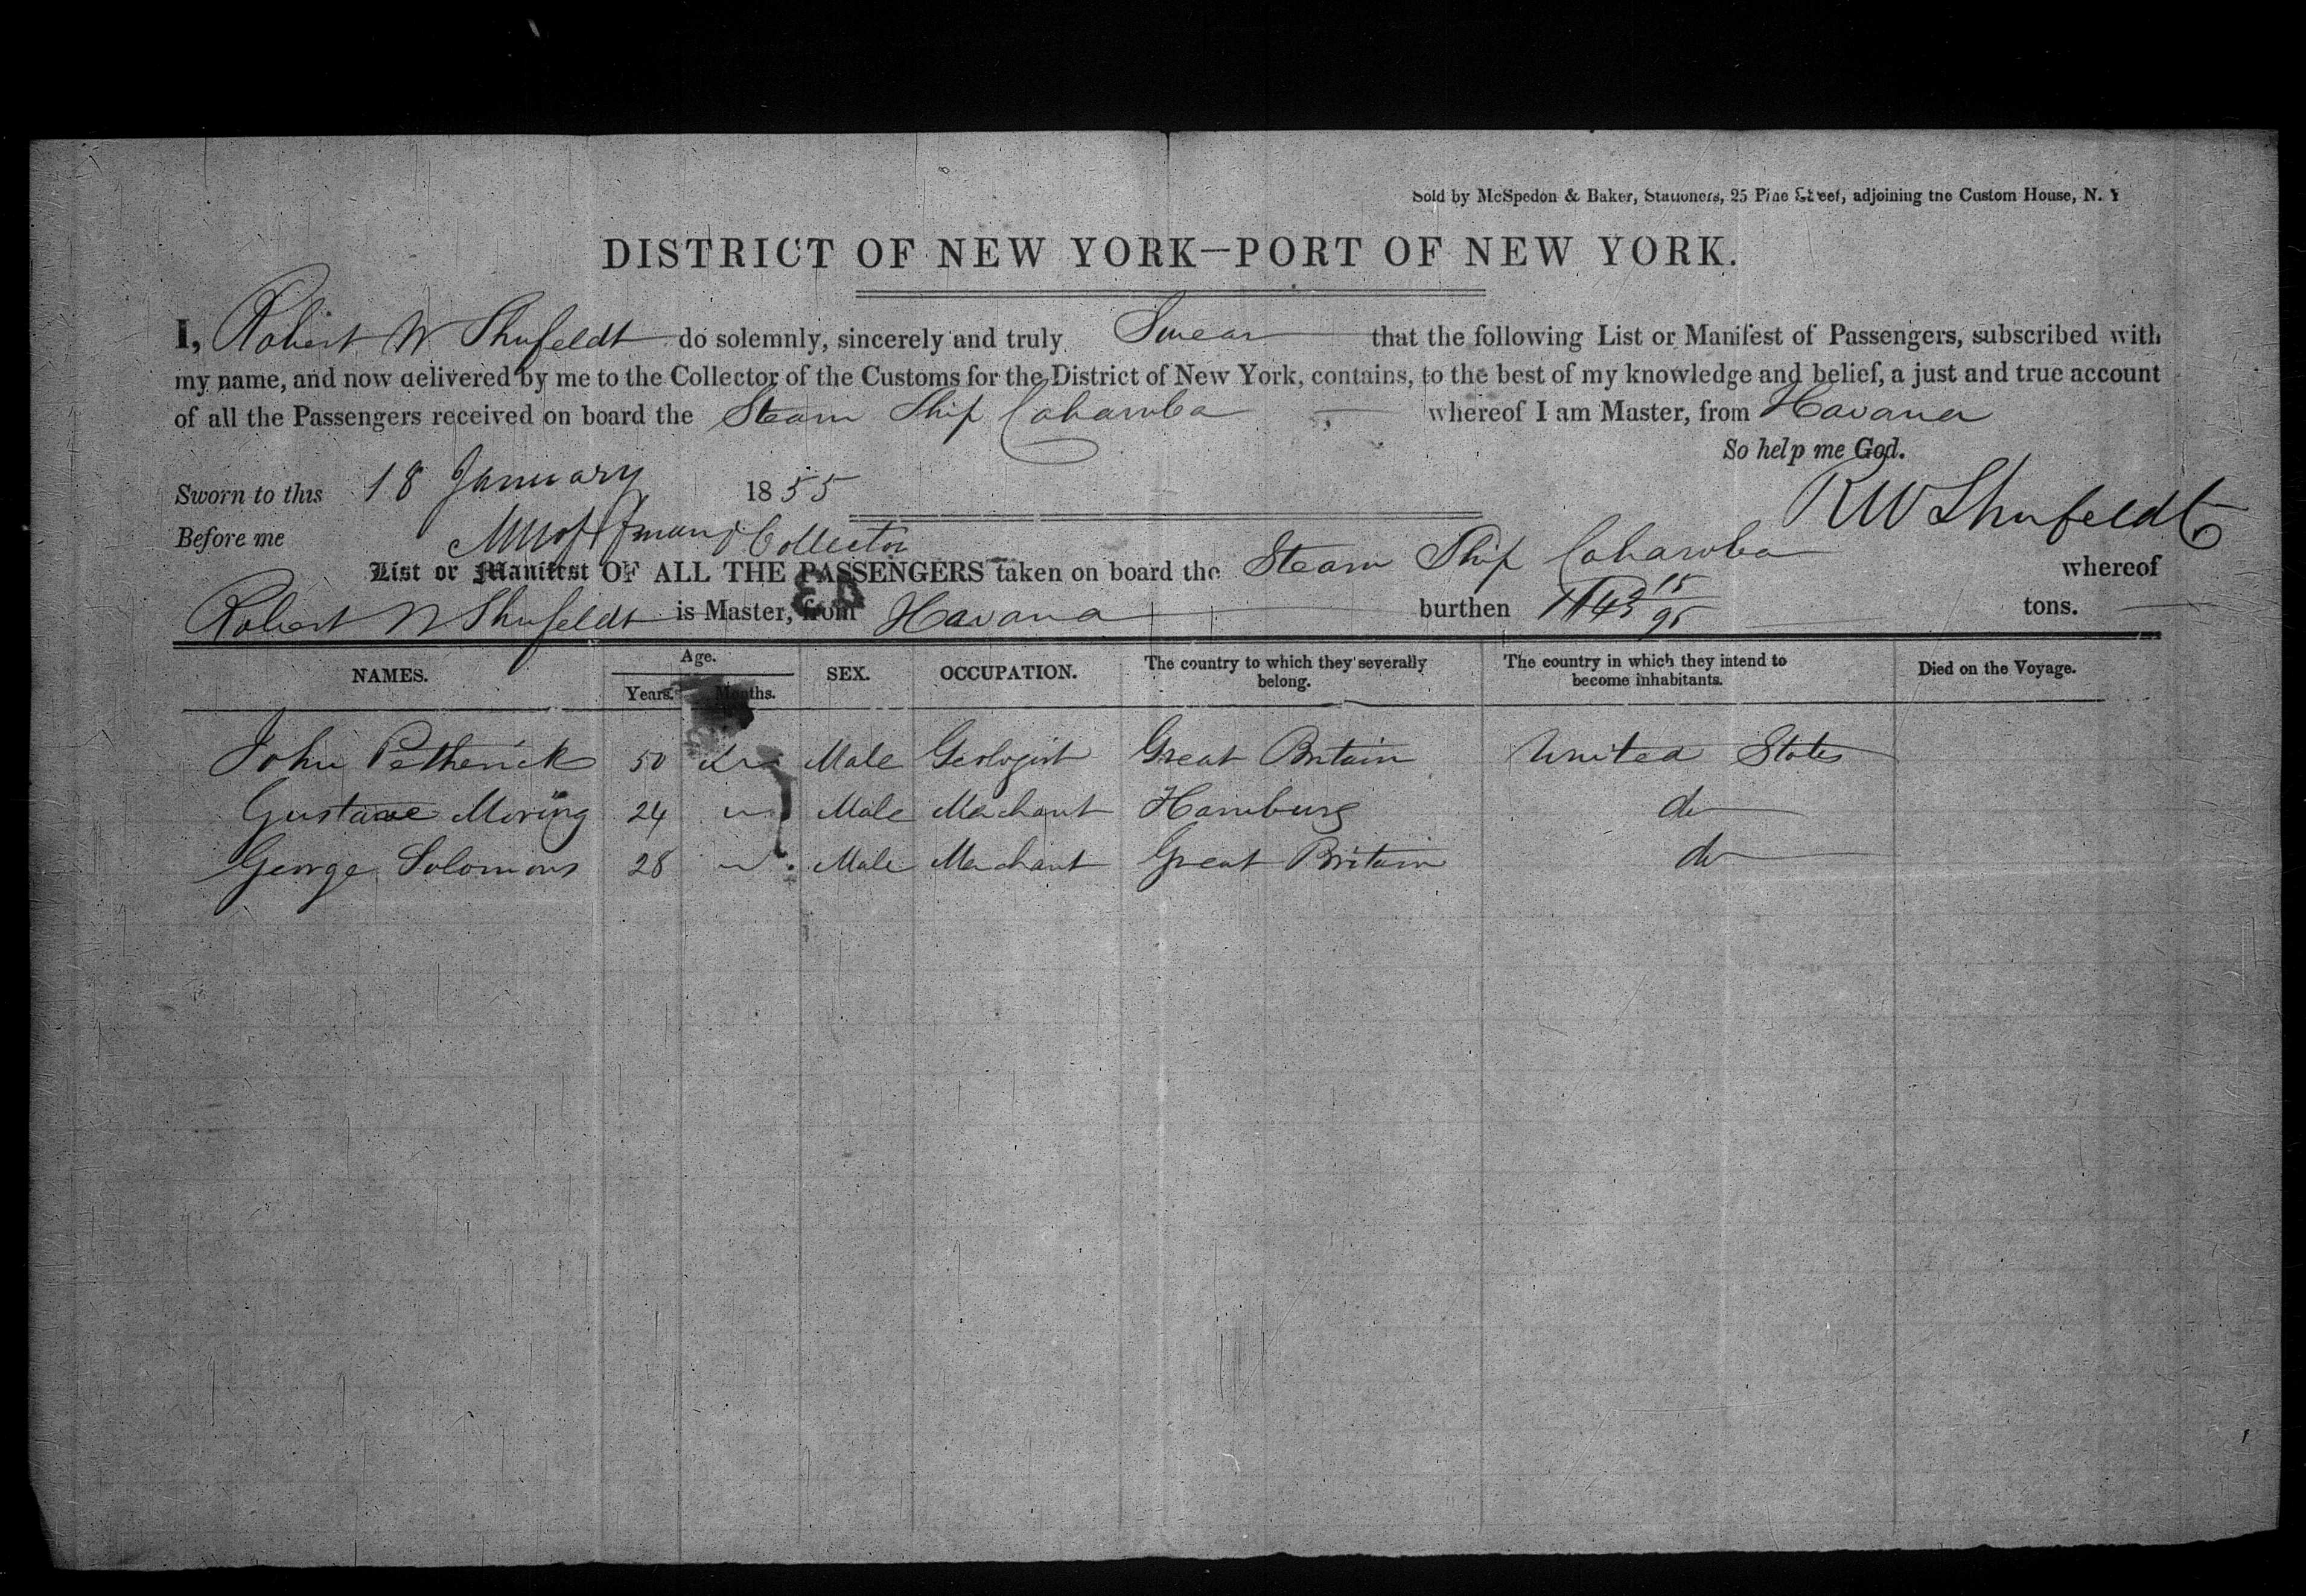 Sold by McSpedon & Baker, Stationers, 25 Pine Street, adjoining the Custom House, N. Y
DISTRICT OF NEW YORK—PORT OF NEW YORK.
I, Robert W Shufeldt do solemnly, sincerely and truly Swear that the following List or Manifest of Passengers, subscribed with
my name, and now delivered by me to the Collector of the Customs for the District of New York, contains, to the best of my knowledge and belief, a just and true account
of all the Passengers received on board the Steam Ship Cahawba whereof I am Master, from Havana
So help me God.
Sworn to this 18 January 1855
R W Shufeldt
Before me Collector
List or Manifest OF ALL THE PASSENGERS taken on board the Steam Ship Cahawba whereof
Robert W Shufeldt is Master, from Havana burthen 1643 15/95 tons.
NAMES. Age. Years. Months. SEX. OCCUPATION. The country to which they severally belong. The country in which they intend to become inhabitants. Died on the Voyage.
John Petherick 50 Male Geologist Great Britain United States
Gustave Moring 24 Male Merchant Hamburg do
George Solomons 28 Male Merchant Great Britain do